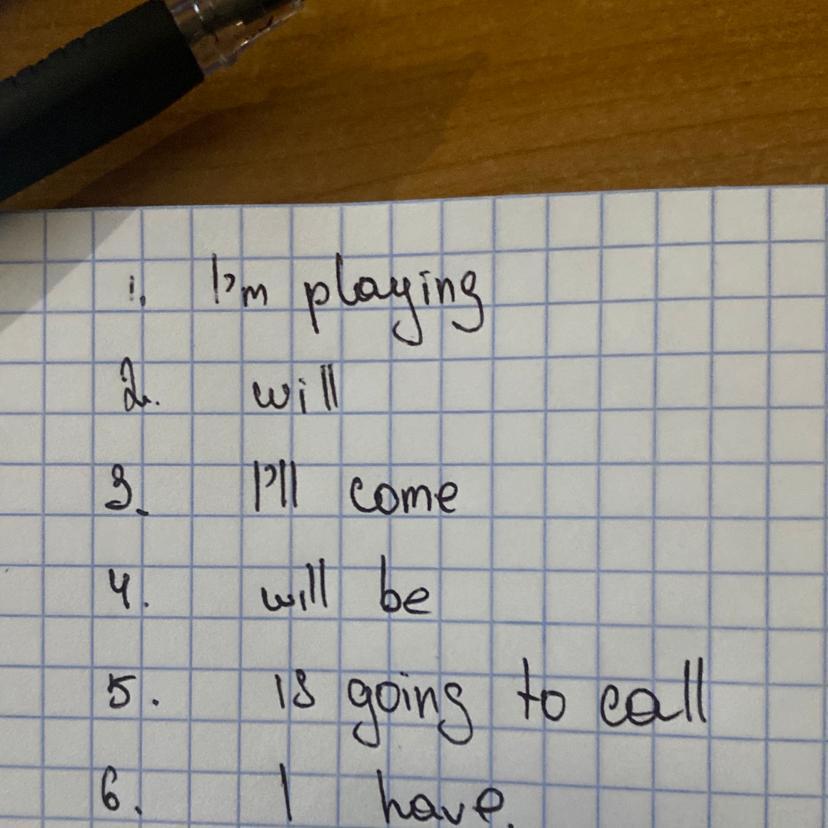 1. I'm playing
2. will
3. I'll come
4. will be
5. is going to call
6. I have